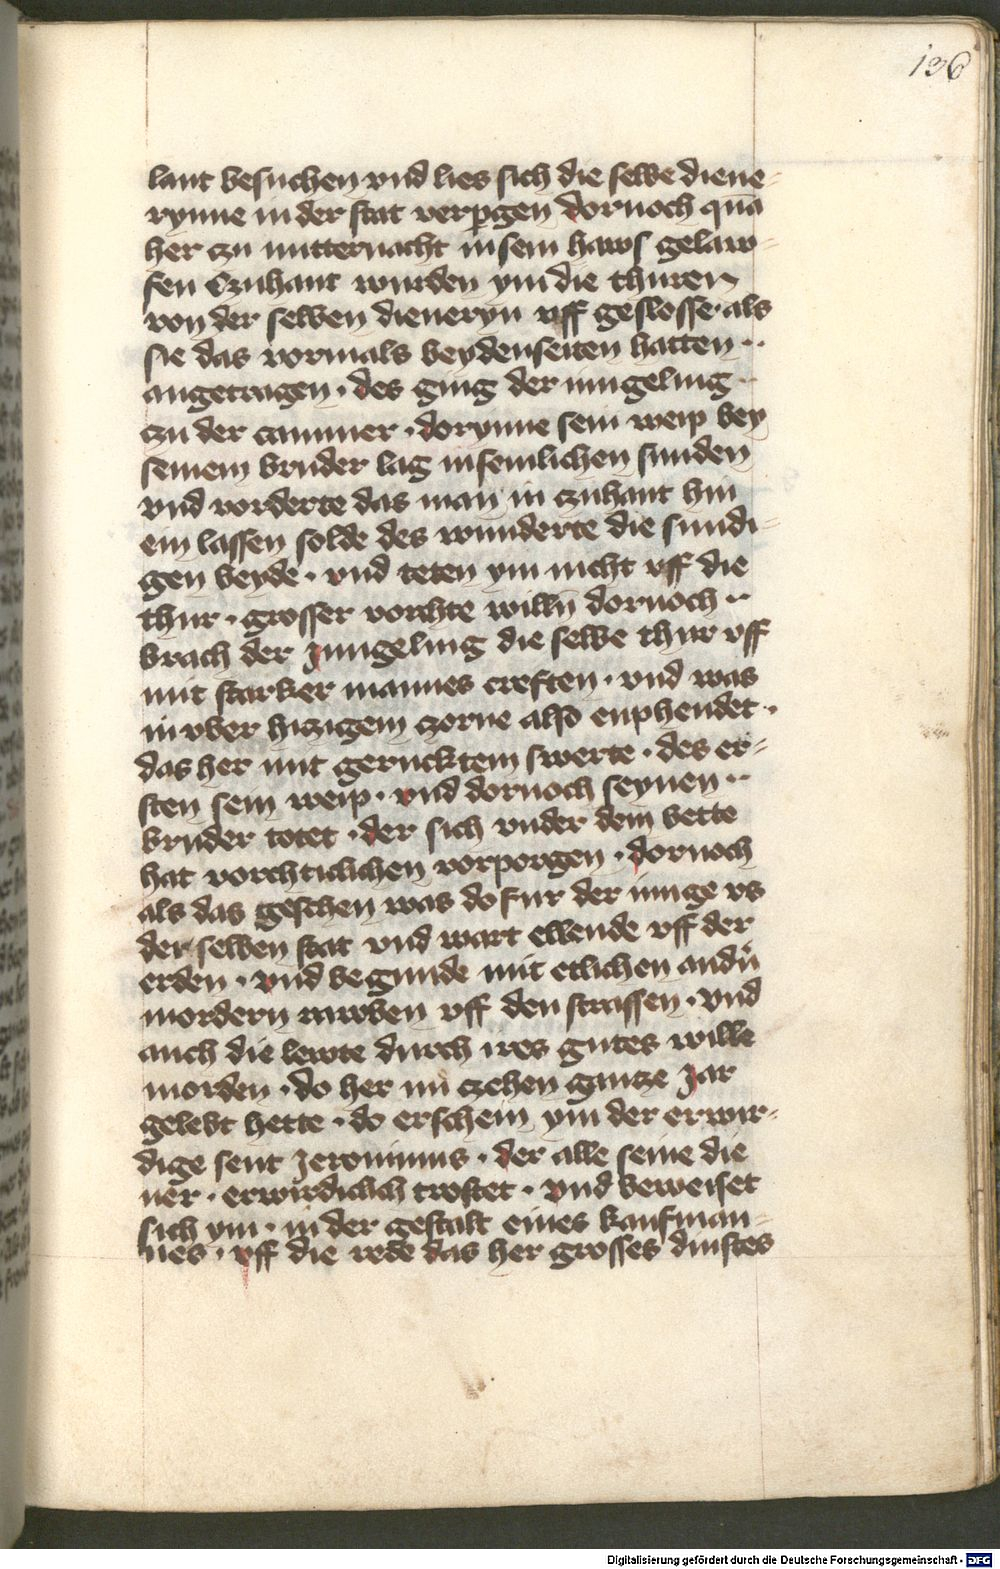 136
lant besuchen vnd lies sich die selbe diene-
rynne in der stat verpgen dornoch qua
her czu mitternacht in sein haws gelaw-
fen Czuhant wurden ym die thuren
von der selben dieneryn vff geslosse· als
sie das vormals beydenseiten hatten ··
angetragen · des ging der iungeling ··
czu der cammer · dorynne sein weip bey
seinem bruder lag in semlichen sunden
vnd vorderte das man in czuhant hin
ein lassen solde des wunderte die sundi-
gen beyde · vnd teten ym nicht vff die
thur · grosser vorchte willn dornoch ··
brach der Jungeling die selbe thur vff
mit starker mannes creften · vnd was
in vber hiczigem czorne also enphendet ·
das her mit gerucktem swerte · des er-
sten sein weip · vnd dornoch seynen ··
bruder totet · der sich vnder dem bette
hat vorchticlichen vorporgen · dornoch
als das geschen was do fur der iunge vs
der selben stat vnd wart ellende vff der
erden · vnd begunde mit etlichen andn
mordern rawben vff den strassen · vnd
auch die lewte durch ires gutes wille
morden · do her nu czehen gantze Jar
gelebt hette · do erschein ym der erwir-
dige sent Jeronimus · der alle seine die
ner · erwirdiclich trostet · vnd beweiset
sich ym · in der gestalt eines kaufman-
nes · vff die rede das her grosses dinstes
Digitalisierung gefördert durch die Deutsche Forschungsgemeinschaft - DFG